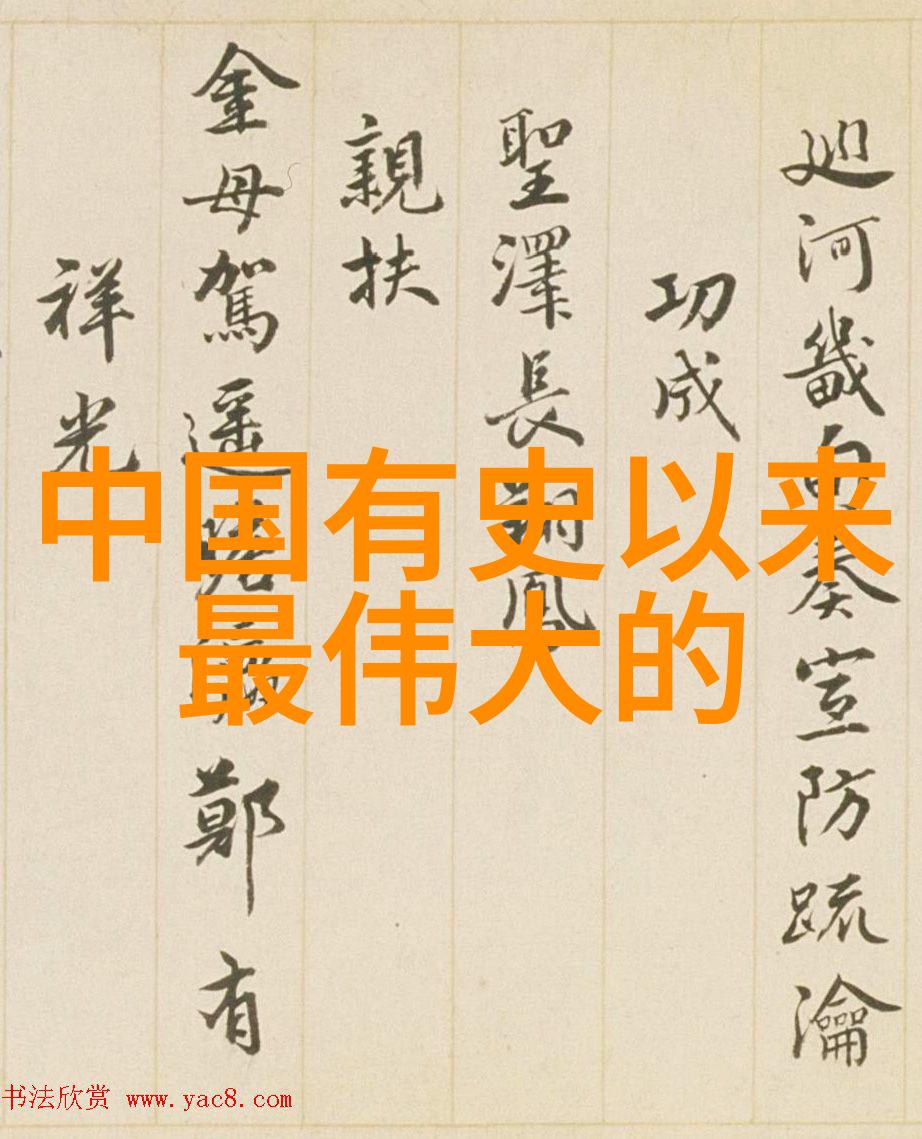 廵河畿奏宣防疏瀹
功成
聖澤長翔鳳
親扶
金母駕遥鄭有
祥光
中国有史以来
最伟大的
书法欣赏 www.yac8.com